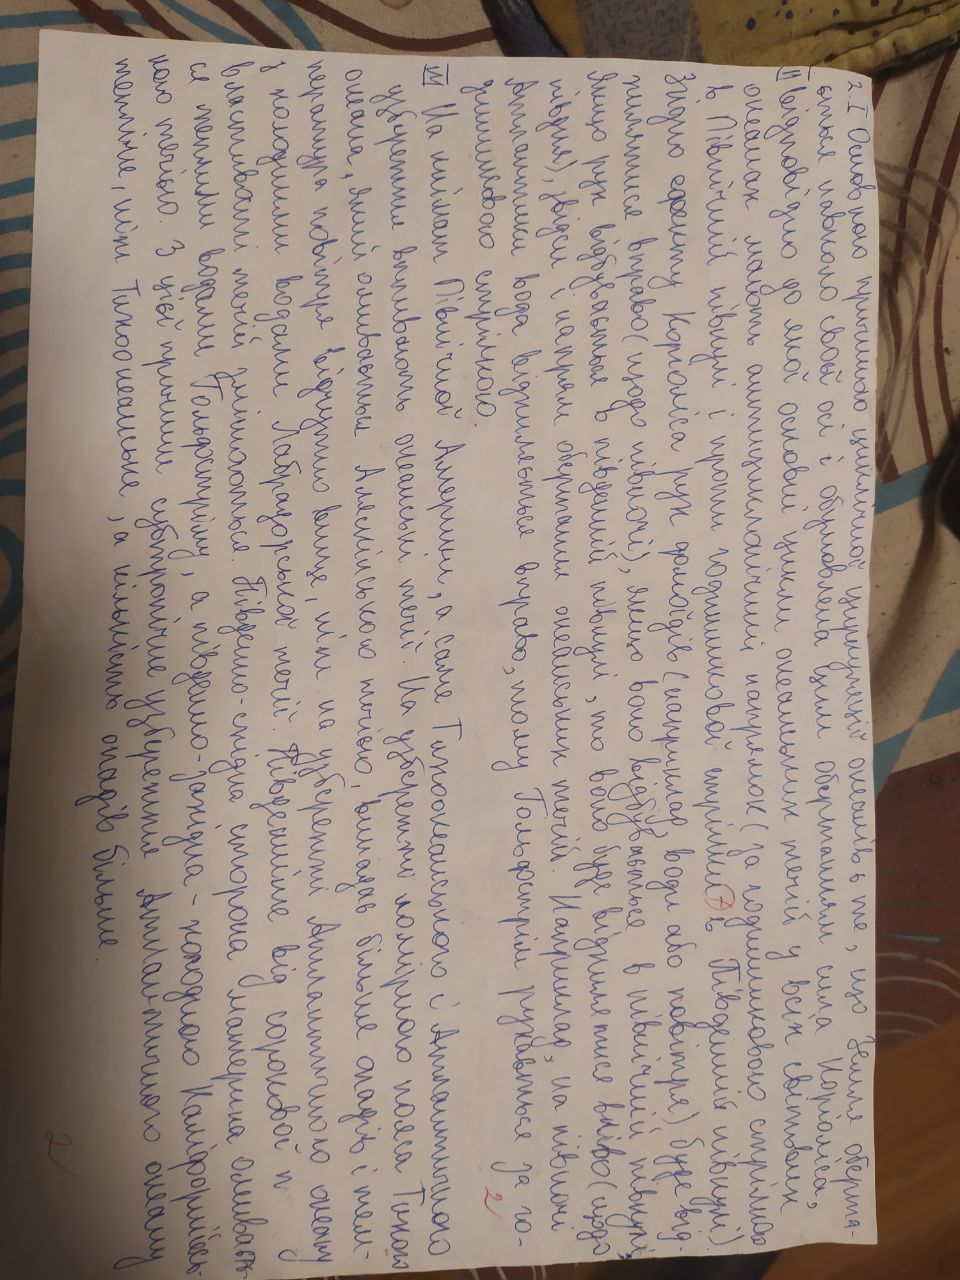 2. I Основною причиною циклічної циркуляції океанів є те, що Земля оберта-
ється навколо своєї осі і обумовлена цим обертанням сила Коріоліса,
II відповідно до якої основні цикли океанських течій у всіх світових
океанах мають антициклонічний напрямок (за годинниковою стрілкою
в Північній півкулі і проти годинникової стрілки в Південній півкулі).
Згідно ефекту Коріоліса рух флюїдів (наприклад, води або повітря) буде від-
хилятися вправо (щодо півночі), якщо воно відбувається в північній півкулі,
якщо рух відбувається в південній півкулі, то воно буде відхилятися вліво (щодо
півдня), звідси і напрям обертання океанських течій. Наприклад, на півночі
Атлантики вода відхиляється вправо, тому Гольфстрім рухається за го-
динниковою стрілкою.
2
III На клімат Північної Америки, а саме Тихоокеанського і Атлантичного
узбережжя впливають океанські течії. На узбережжі помірного пояса Тихого
океана, який омивається Аляскінською течією, випадає більше опадів і тем-
пература повітря відчутно вище, ніж на узбережжі Атлантичного океану
з холодними водами Лабрадорської течії. Південніше від сорокової п
властивості течій змінюються. Південно-східна сторона материка омиваєть-
ся теплими водами Гольфстріму, а південно-західна - холодною Каліфорнійсь-
кою течією. З цієї причини субтропічне узбережжя Атлантичного океану
тепліше, ніж Тихоокеанське, а кількість опадів більше.
2